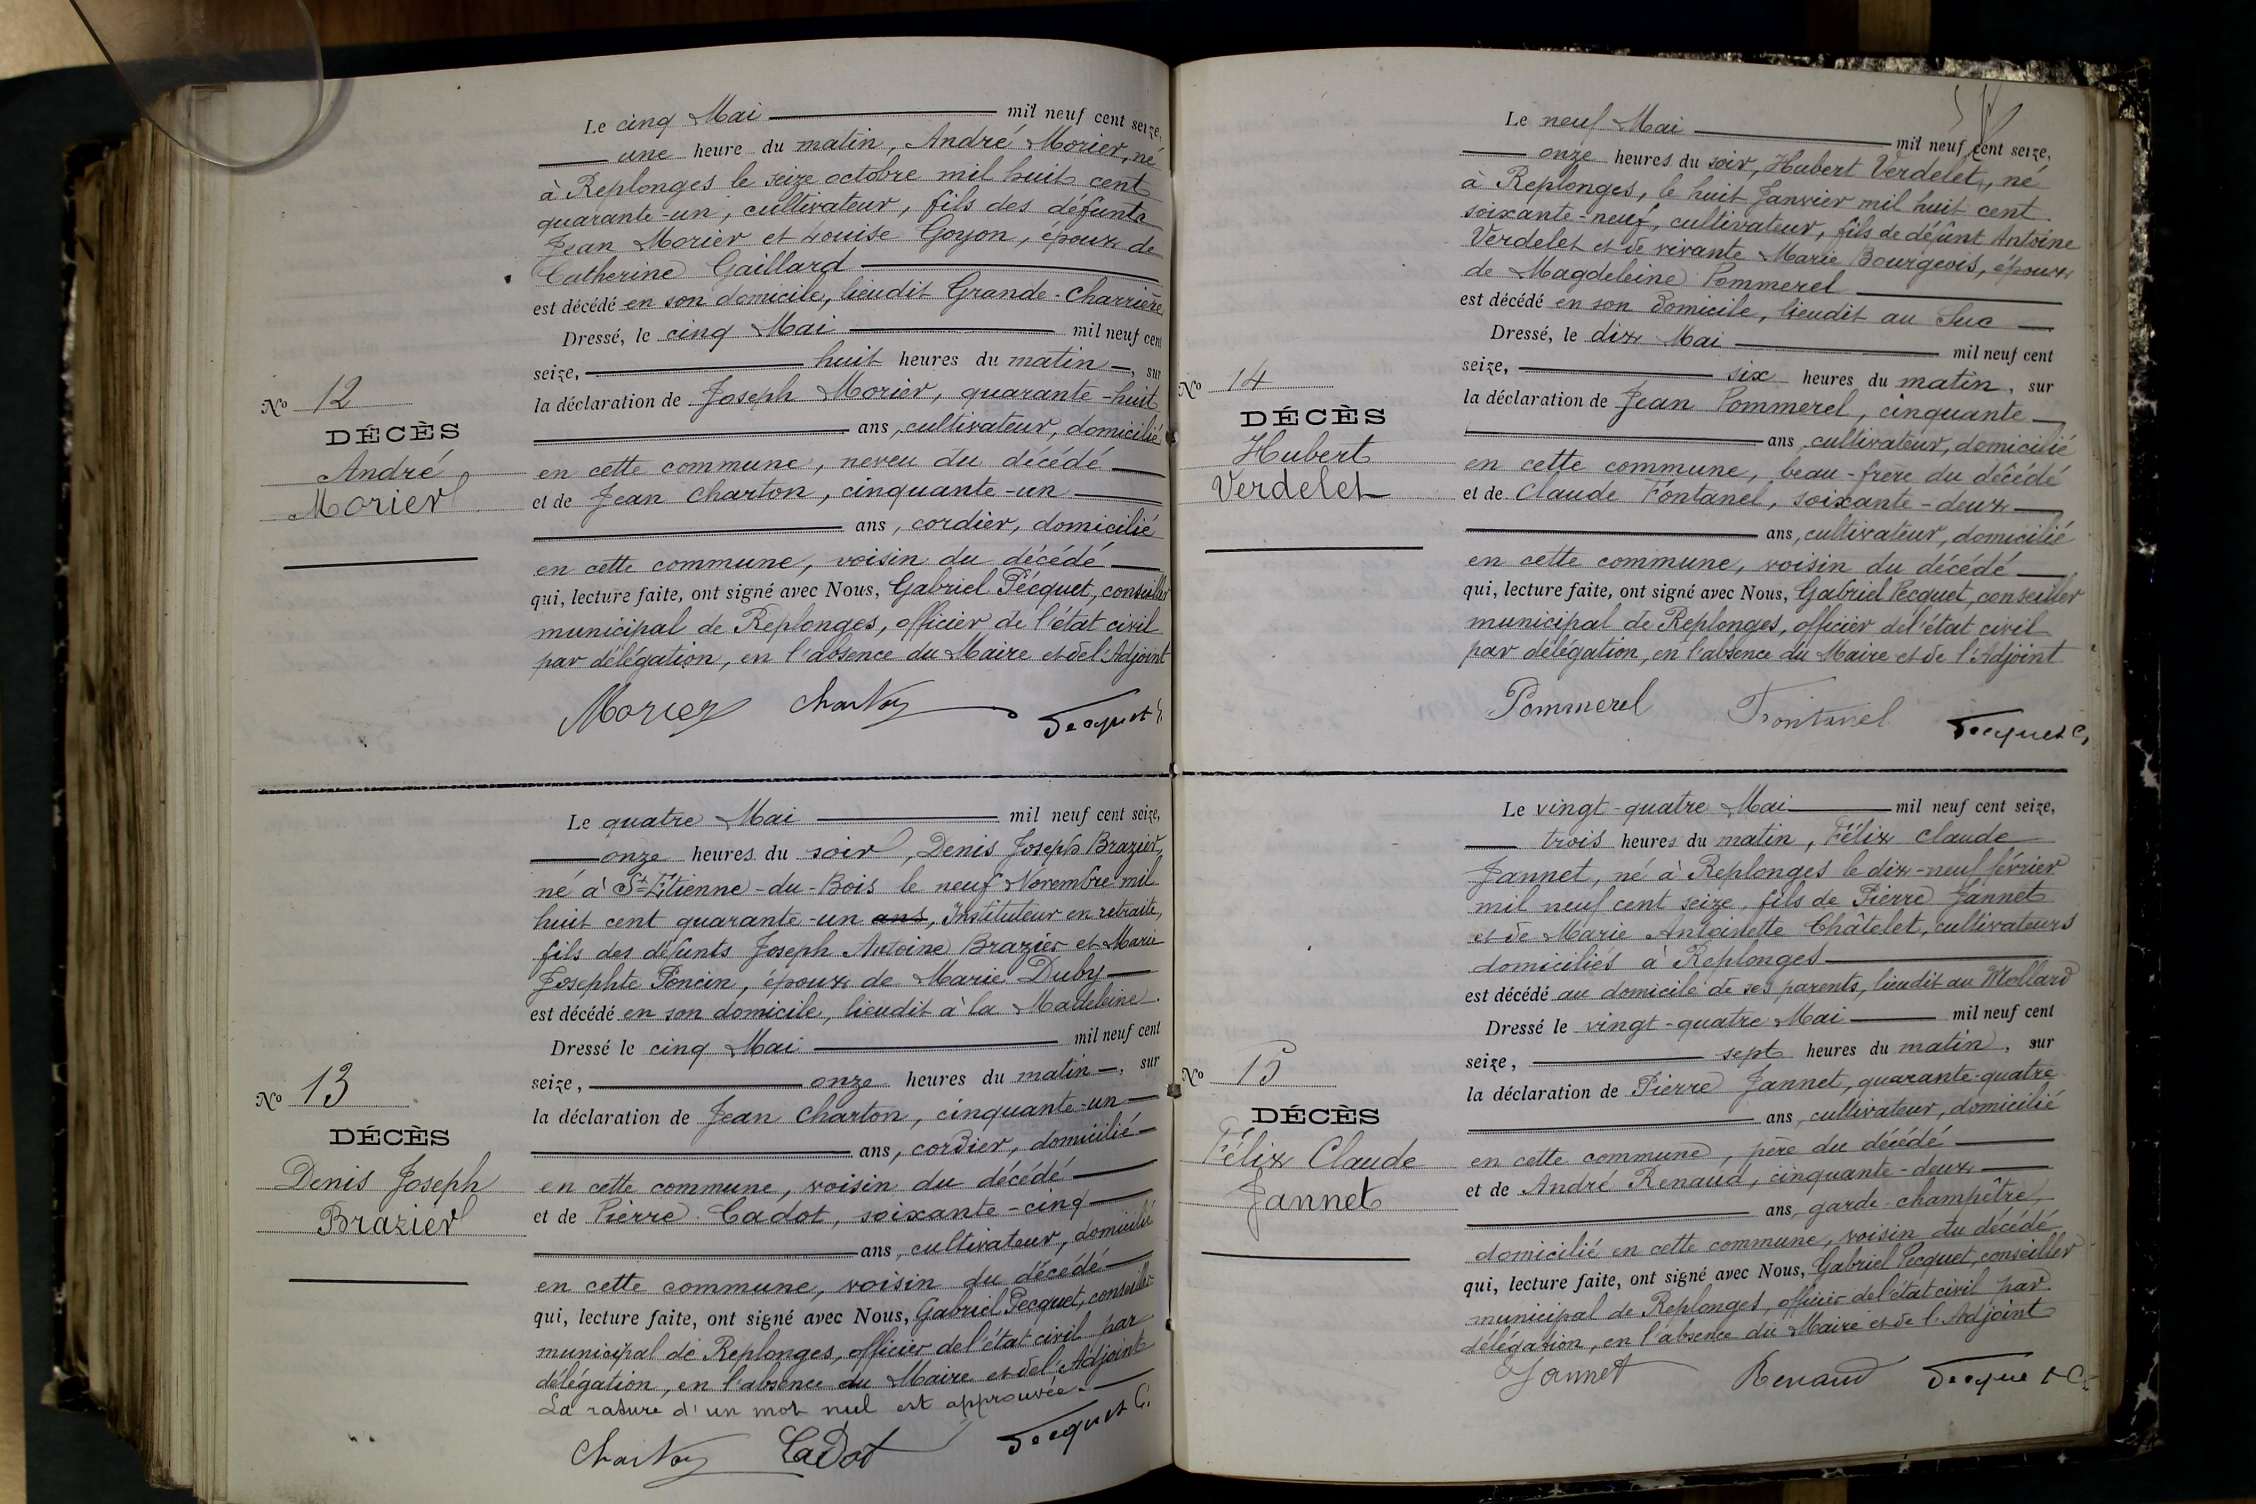 Le cinq Mai mil neuf cent seize,
une heure du matin, André Morier, né
à Replonges le seize octobre mil huit cent
quarante-un, cultivateur, fils des défunts
Jean Morier et Louise Goyon, époux de
Catherine Gaillard
est décédé en son domicile, lieudit Grande-Charrière
Dressé, le cinq Mai mil neuf cent
seize, huit heures du matin, sur
la déclaration de Joseph Morier, quarante-huit
ans, cultivateur, domicilié
en cette commune, neveu du décédé
et de Jean Charton, cinquante-un
ans, cordier, domicilié
en cette commune, voisin du décédé
qui, lecture faite, ont signé avec Nous, Gabriel Pecquet, conseiller
municipal de Replonges, officier de l'état civil
par délégation, en l'absence du Maire et de l'Adjoint
Morier Charton Pecquet G
No 12
DÉCÈS
André
Morier
Le quatre Mai mil neuf cent seize,
onze heures du soir, Denis Joseph Brazier,
né à St-Etienne-du-Bois le neuf Novembre mil
huit cent quarante-un ans, Instituteur en retraite,
fils des défunts Joseph Antoine Brazier et Marie
Josephte Poncin, époux de Marie Duby
est décédé en son domicile, lieudit à la Madeleine
Dressé le cinq Mai mil neuf cent
seize, onze heures du matin, sur
la déclaration de Jean Charton, cinquante-un
ans, cordier, domicilié
en cette commune, voisin du décédé
et de Pierre Cadot, soixante-cinq
ans, cultivateur, domicilié
en cette commune, voisin du décédé
qui, lecture faite, ont signé avec Nous, Gabriel Pecquet, conseiller
municipal de Replonges, officier de l'état civil par
délégation, en l'absence du Maire et de l'Adjoint
La rature d'un mot nul est approuvée.
Charton Cadot Pecquet G.
No 13
DÉCÈS
Denis Joseph
Brazier
Le neuf Mai mil neuf cent seize,
onze heures du soir, Hubert Verdelet, né
à Replonges, le huit Janvier mil huit cent
soixante-neuf, cultivateur, fils de défunt Antoine
Verdelet et de vivante Marie Bourgeois, époux
de Magdeleine Pommerel
est décédé en son domicile, lieudit au Suc
Dressé, le dix Mai mil neuf cent
seize, six heures du matin, sur
la déclaration de Jean Pommerel, cinquante
ans, cultivateur, domicilié
en cette commune, beau-frère du décédé
et de Claude Fontanel, soixante-deux
ans, cultivateur, domicilié
en cette commune, voisin du décédé
qui, lecture faite, ont signé avec Nous, Gabriel Pecquet, conseiller
municipal de Replonges, officier de l'état civil
par délégation, en l'absence du Maire et de l'Adjoint
Pommerel Fontanel Pecquet G,
No 14
DÉCÈS
Hubert
Verdelet
Le vingt-quatre Mai mil neuf cent seize,
trois heures du matin, Félix Claude
Jannet, né à Replonges le dix-neuf février
mil neuf cent seize, fils de Pierre Jannet
et de Marie Antoinette Châtelet, cultivateurs
domiciliés à Replonges
est décédé au domicile de ses parents, lieudit au Mollard
Dressé le vingt-quatre Mai mil neuf cent
seize, sept heures du matin, sur
la déclaration de Pierre Jannet, quarante-quatre
ans, cultivateur, domicilié
en cette commune, père du décédé
et de André Renaud, cinquante-deux
ans, garde-champêtre,
domicilié en cette commune, voisin du décédé
qui, lecture faite, ont signé avec Nous, Gabriel Pecquet, conseiller
municipal de Replonges, officier de l'état civil par
délégation, en l'absence du Maire et de l'Adjoint
Jannet Renaud Pecquet G
No 15
DÉCÈS
Félix Claude
Jannet